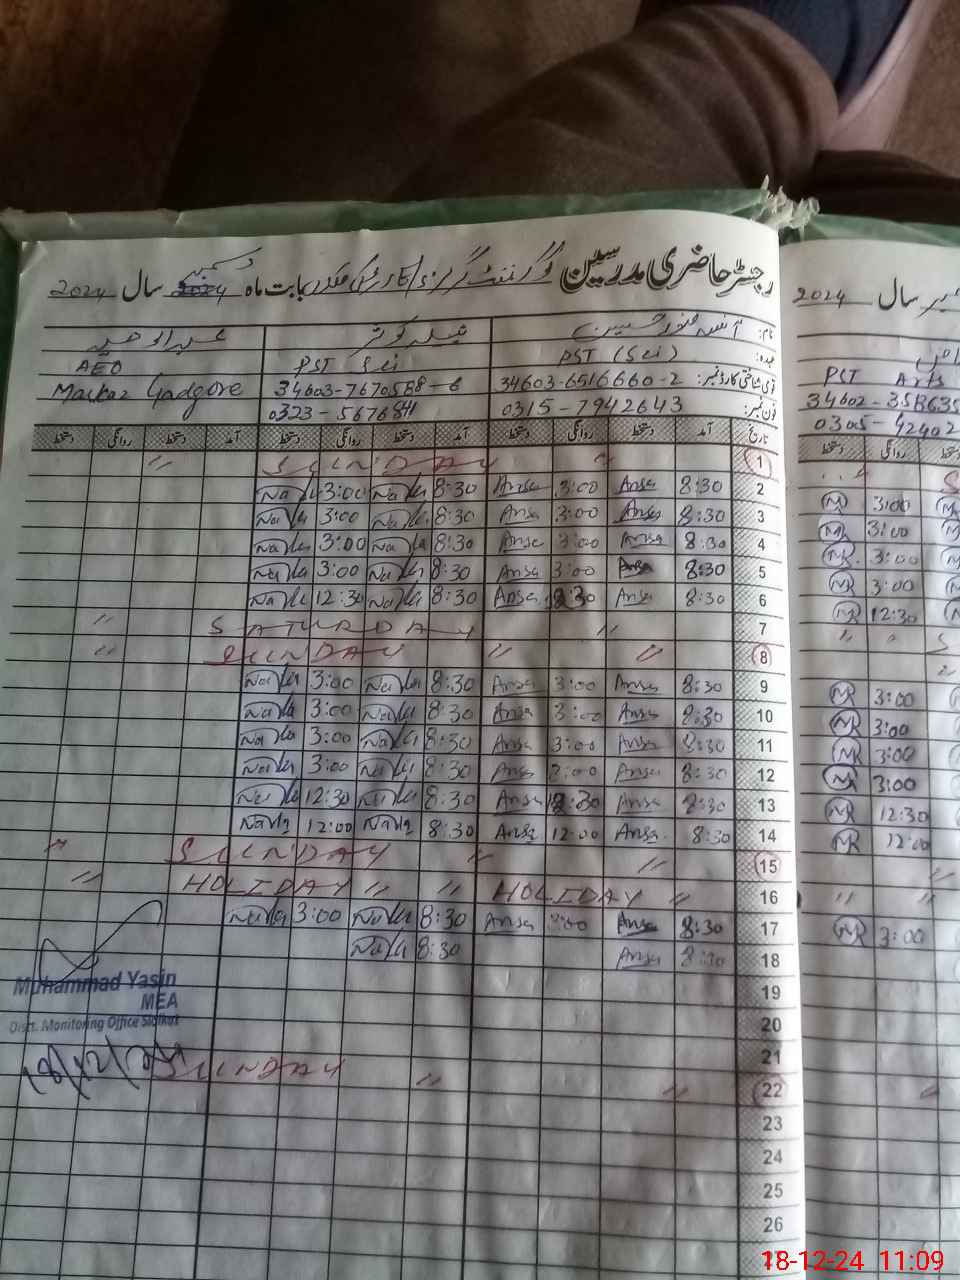 رجسٹر حاضری مدرسین گورنمنٹ گرلز بابت ماہ دسمبر 2024 سال 2024
سال 2024
نام: آنسہ منور حسین شہلہ کوثر عبدالوحید
عہدہ: PST (Sci) PST Sci AEO
قومی شناختی کارڈ نمبر: 34603-6516660-2 34603-7670588-6 Markaz Gadgore
فون نمبر: 0315-7942643 0323-5676841
PST Arts
34602-358635
0305-42402
تاریخ آمد دستخط روانگی دستخط آمد دستخط روانگی دستخط آمد دستخط روانگی دستخط
1 " SUNDAY "
2 8:30 Ansa 3:00 Ansa 8:30 3:00 3:00
3 8:30 Ansa 3:00 Ansa 8:30 3:00 3:00
4 8:30 Ansa 3:00 Ansa 8:30 3:00 3:00
5 8:30 Ansa 3:00 Ansa 8:30 3:00 3:00
6 8:30 Ansa 12:30 Ansa 8:30 12:30 12:30
7 " SATURDAY "
8 " " SUNDAY "
9 8:30 Ansa 3:00 Ansa 8:30 3:00 3:00
10 8:30 Ansa 3:00 Ansa 8:30 3:00 3:00
11 8:30 Ansa 3:00 Ansa 8:30 3:00 3:00
12 8:30 Ansa 3:00 Ansa 8:30 3:00 3:00
13 8:30 Ansa 12:30 Ansa 8:30 12:30 12:30
14 8:30 Ansa 12:00 Ansa 8:30 12:00 12:00
15 " " SUNDAY "
16 " HOLIDAY " " HOLIDAY "
17 8:30 Ansa 3:00 Ansa 8:30 3:00 3:00
18 8:30 Ansa 8:30
19
20
21
22 " " SUNDAY
23
24
25
26
Muhammad Yasin
MEA
Distt. Monitoring Office Sialkot
18/12/24
18-12-24 11:09